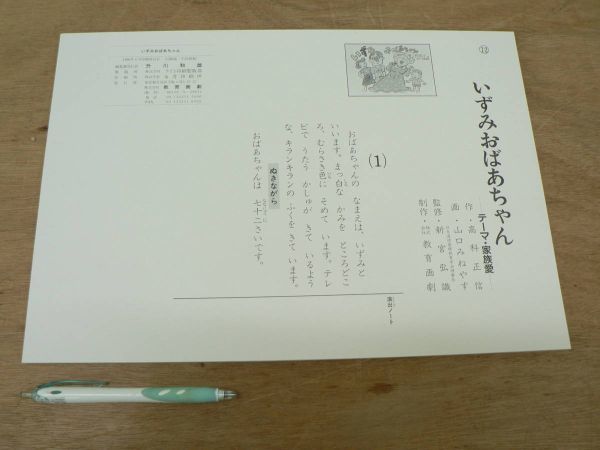 ⑫
いずみおばあちゃん
テーマ・家族愛
作・高科正信
画・山口みねやす
監修・新宮弘識
制作・株式会社教育画劇
(1)
おばあちゃんの なまえは、いずみと
いいます。まっ白な かみを ところどこ
ろ、むらさき色に そめて います。テレ
ビで うたう かしゅが きて いるよう
な、キランキランの ふくを きて います。
ぬきながら
おばあちゃんは 七十二さいです。
演出ノート
いずみおばあちゃん
教育画劇